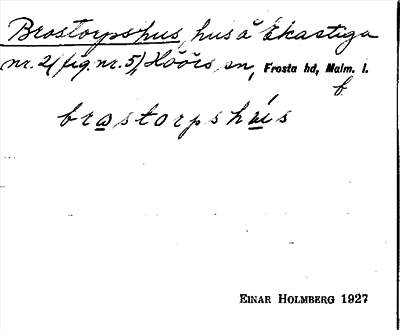 Brostorpshus, hus å Ekastiga
nr. 2 (fig. nr. 5), Höörs sn, Frosta hd, Malm. l.
b.
brostorpshús
EINAR HOLMBERG 1927